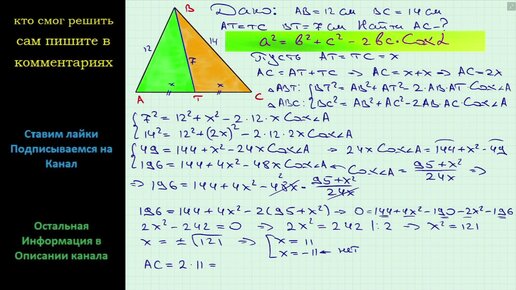 кто смог решить
сам пишите в
комментариях
Ставим лайки
Подписываемся на
Канал
Остальная
Информация в
Описании канала
B
12
7
14
A
T
C
Дано: AB=12см BC=14см
AT=TC BT=7см Найти AC-?
a²=b²+c²-2bc·Cosα
Пусть AT=TC=x
AC=AT+TC ⇒ AC=x+x ⇒ AC=2x
△ABT: {BT²=AB²+AT²-2·AB·AT Cos∠A
△ABC: {BC²=AB²+AC²-2AB·AC Cos∠A
{7²=12²+x²-2·12·x Cos∠A
{14²=12²+(2x)²-2·12·2x Cos∠A
{49=144+x²-24x Cos∠A ⇒ 24x Cos∠A=144+x²-49
{196=144+4x²-48x Cos∠A Cos∠A=95+x²/24x ⇒
⇒ 196=144+4x²-48x·95+x²/24x
196=144+4x²-2(95+x²) ⇒ 0=144+4x²-190-2x²-196
2x²-242=0 ⇒ 2x²=242 |:2 ⇒ x²=121
x=±√121 ⇒ {x=11
{x=-11 ← нет
AC=2·11=